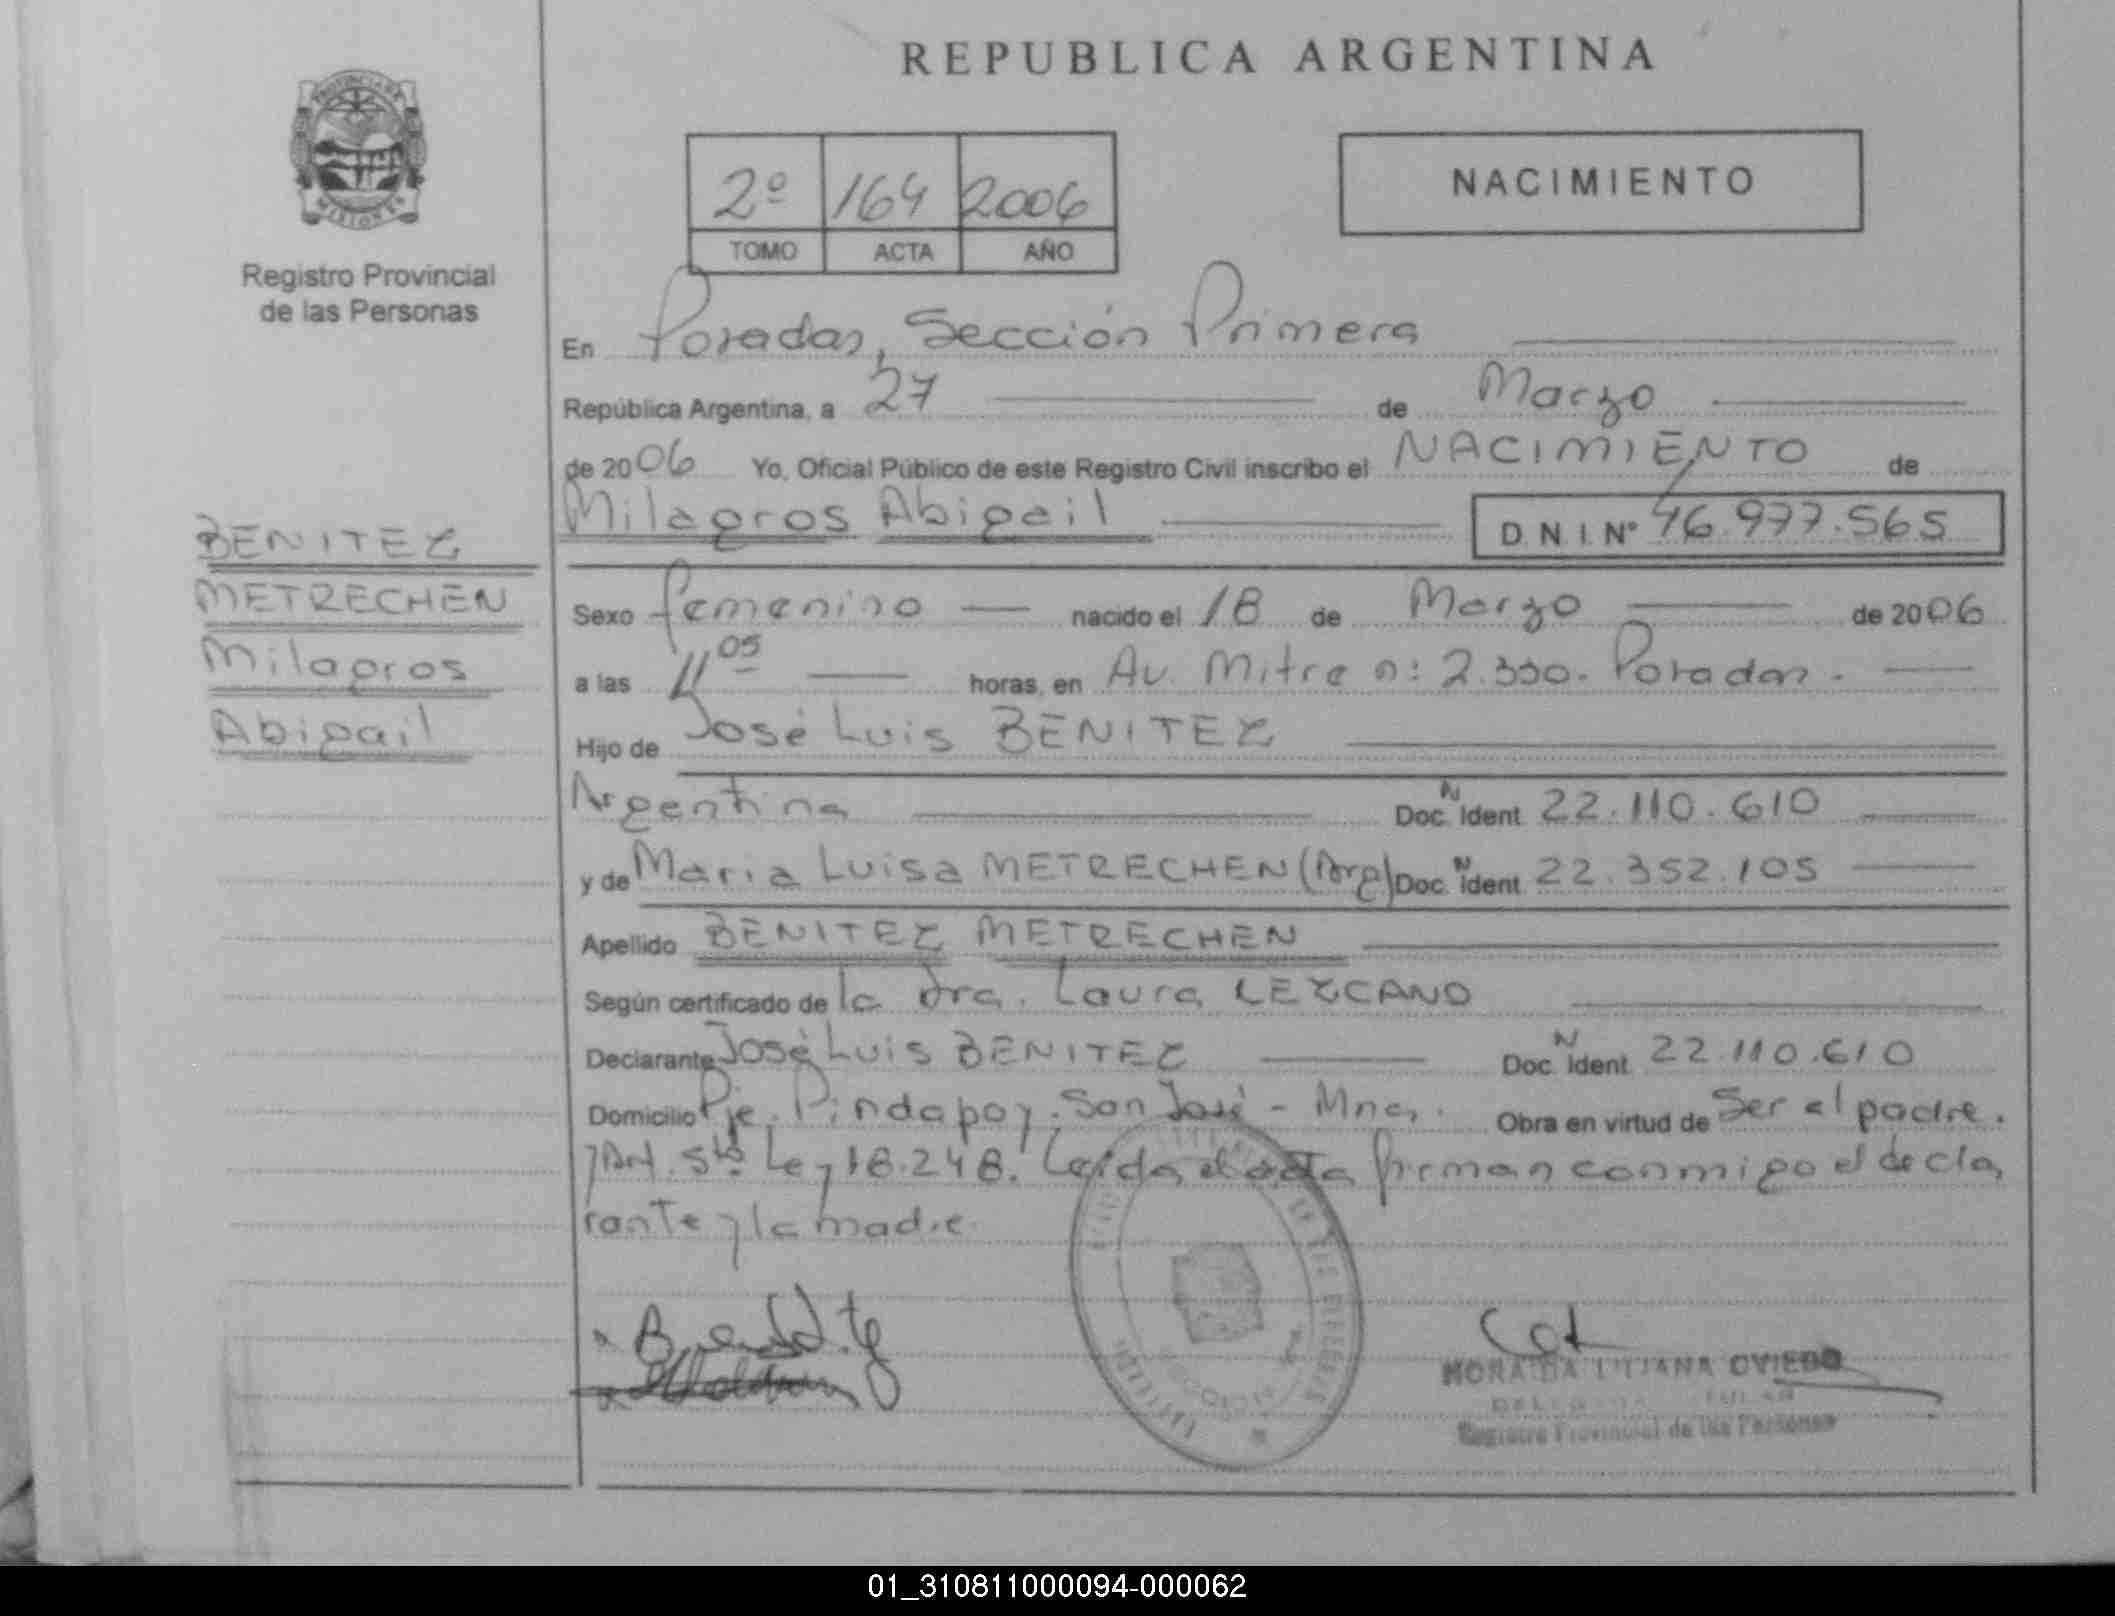 REPUBLICA ARGENTINA
PROVINCIA DE
MISIONES
Registro Provincial
de las Personas
2º 164 2006
TOMO ACTA AÑO
NACIMIENTO
En Posadas, Sección Primera
República Argentina, a 27 de Marzo
de 2006 Yo, Oficial Público de este Registro Civil inscribo el NACIMIENTO de
Milagros Abigail D.N.I. Nº 46.977.565
BENITEZ
METRECHEN
Milagros
Abigail
Sexo femenino nacido el 18 de Marzo de 2006
a las 11 05 horas, en Av. Mitre n: 2.330. Posadas.
Hijo de José Luis BENITEZ
Argentina Doc. N Ident 22.110.610
y de Maria Luisa METRECHEN (Arg) Doc. N Ident 22.352.105
Apellido BENITEZ METRECHEN
Según certificado de la Dra. Laura LEZCANO
Declarante José Luis BENITEZ Doc. N Ident. 22.110.610
Domicilio Pje. Pindapoy. San José - Mnes. Obra en virtud de Ser el padre.
y Art. 5to. Ley 18.248. Leída el acta firman conmigo el decla
rante y la madre.
LILIANA OVIEDO
Registro Provincial de las Personas
01_310811000094-000062